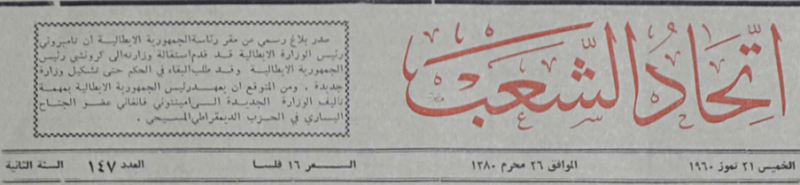 اتحاد الشعب
صدر بلاغ رسمي من مقر رئاسة الجمهورية الايطالية أن تامبروني
رئيس الوزارة الايطالية قد قدم استقالة وزارته الى كرونشي رئيس
الجمهورية الايطالية وقد طلب البقاء في الحكم حتى تشكيل وزارة
جديدة . ومن المتوقع ان يعهد رئيس الجمهورية الايطالية بمهمة
تأليف الوزارة الجديدة الى امينتوني فانفاني عضو الجناح
اليساري في الحزب الديمقراطي المسيحي .
الخميس ٢١ تموز ١٩٦٠ الموافق ٢٦ محرم ١٣٨٠ السعر ١٦ فلسا العدد ١٤٧ السنة الثانية